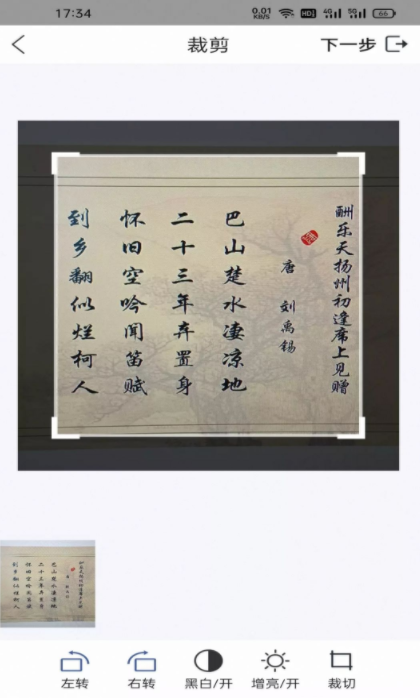 17:34
0.01 KB/S
HD
4G
5G
66
裁剪
下一步
酬乐天扬州初逢席上见赠
唐 刘禹锡
巴山楚水凄凉地
二十三年弃置身
怀旧空吟闻笛赋
到乡翻似烂柯人
左转
右转
黑白/开
增亮/开
裁切